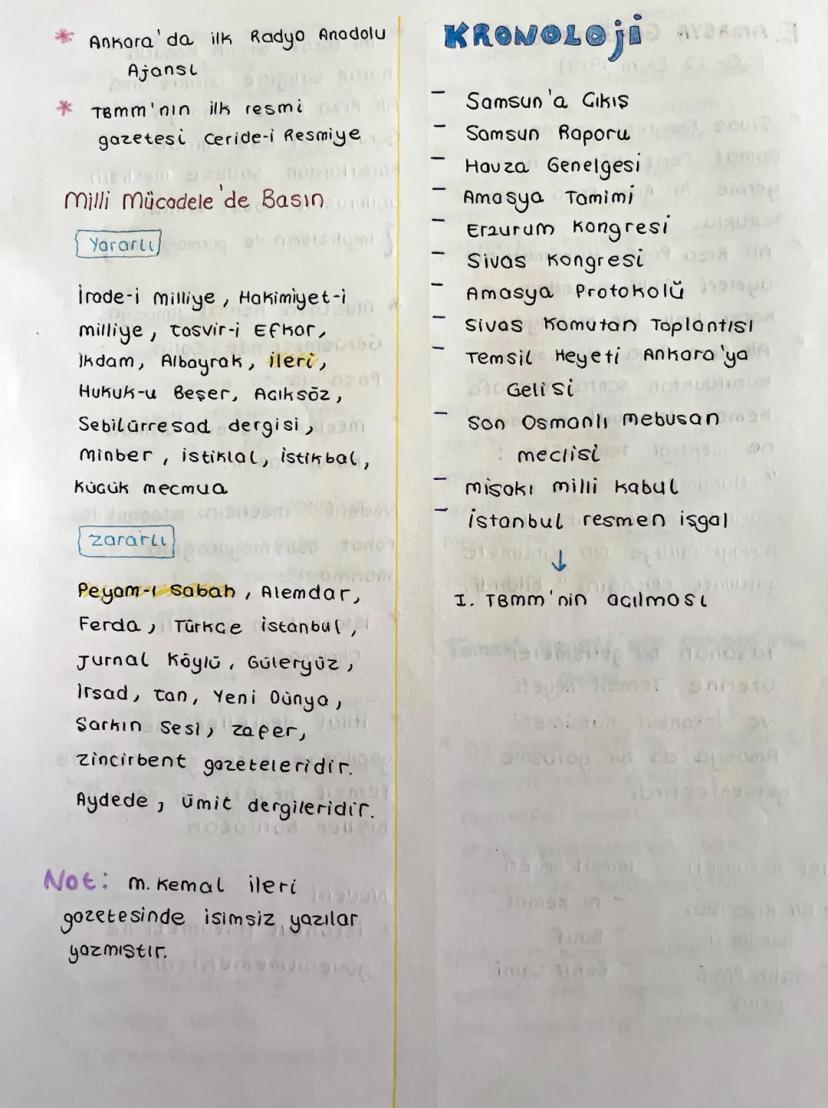 * Ankara'da ilk Radyo Anadolu
Ajansı
* TBMM'nin ilk resmi
gazetesi Ceride-i Resmiye
Milli Mücadele'de Basın
Yararlı
İrade-i milliye, Hakimiyet-i
milliye, tasvir-i Efkar,
İkdam, Albayrak, ileri,
Hukuk-u Beşer, Acıksöz,
Sebilürresad dergisi,
minber, istiklal, istikbal,
Kücük mecmua
zararlı
Peyam-ı Sabah, Alemdar,
Ferda, Türkce istanbul,
Jurnal Köylü, Güleryüz,
İrsad, tan, Yeni Dünya,
Sarkın Sesi, zafer,
zincirbent gazeteleridir.
Aydede, ümit dergileridir.
Not: m. Kemal ileri
gazetesinde isimsiz yazılar
yazmıstır.
KRONOLOji
- Samsun'a Cıkış
- Samsun Raporu
- Havza Genelgesi
- Amasya Tamimi
- Erzurum Kongresi
- Sivas Kongresi
- Amasya Protokolü
- Sivas Komutan Toplantısı
- Temsil Heyeti Ankara'ya
Gelisi
- Son Osmanlı mebusan
meclisi
- misakı milli kabul
- istanbul resmen işgal
↓
I. TBMM'nin acılması